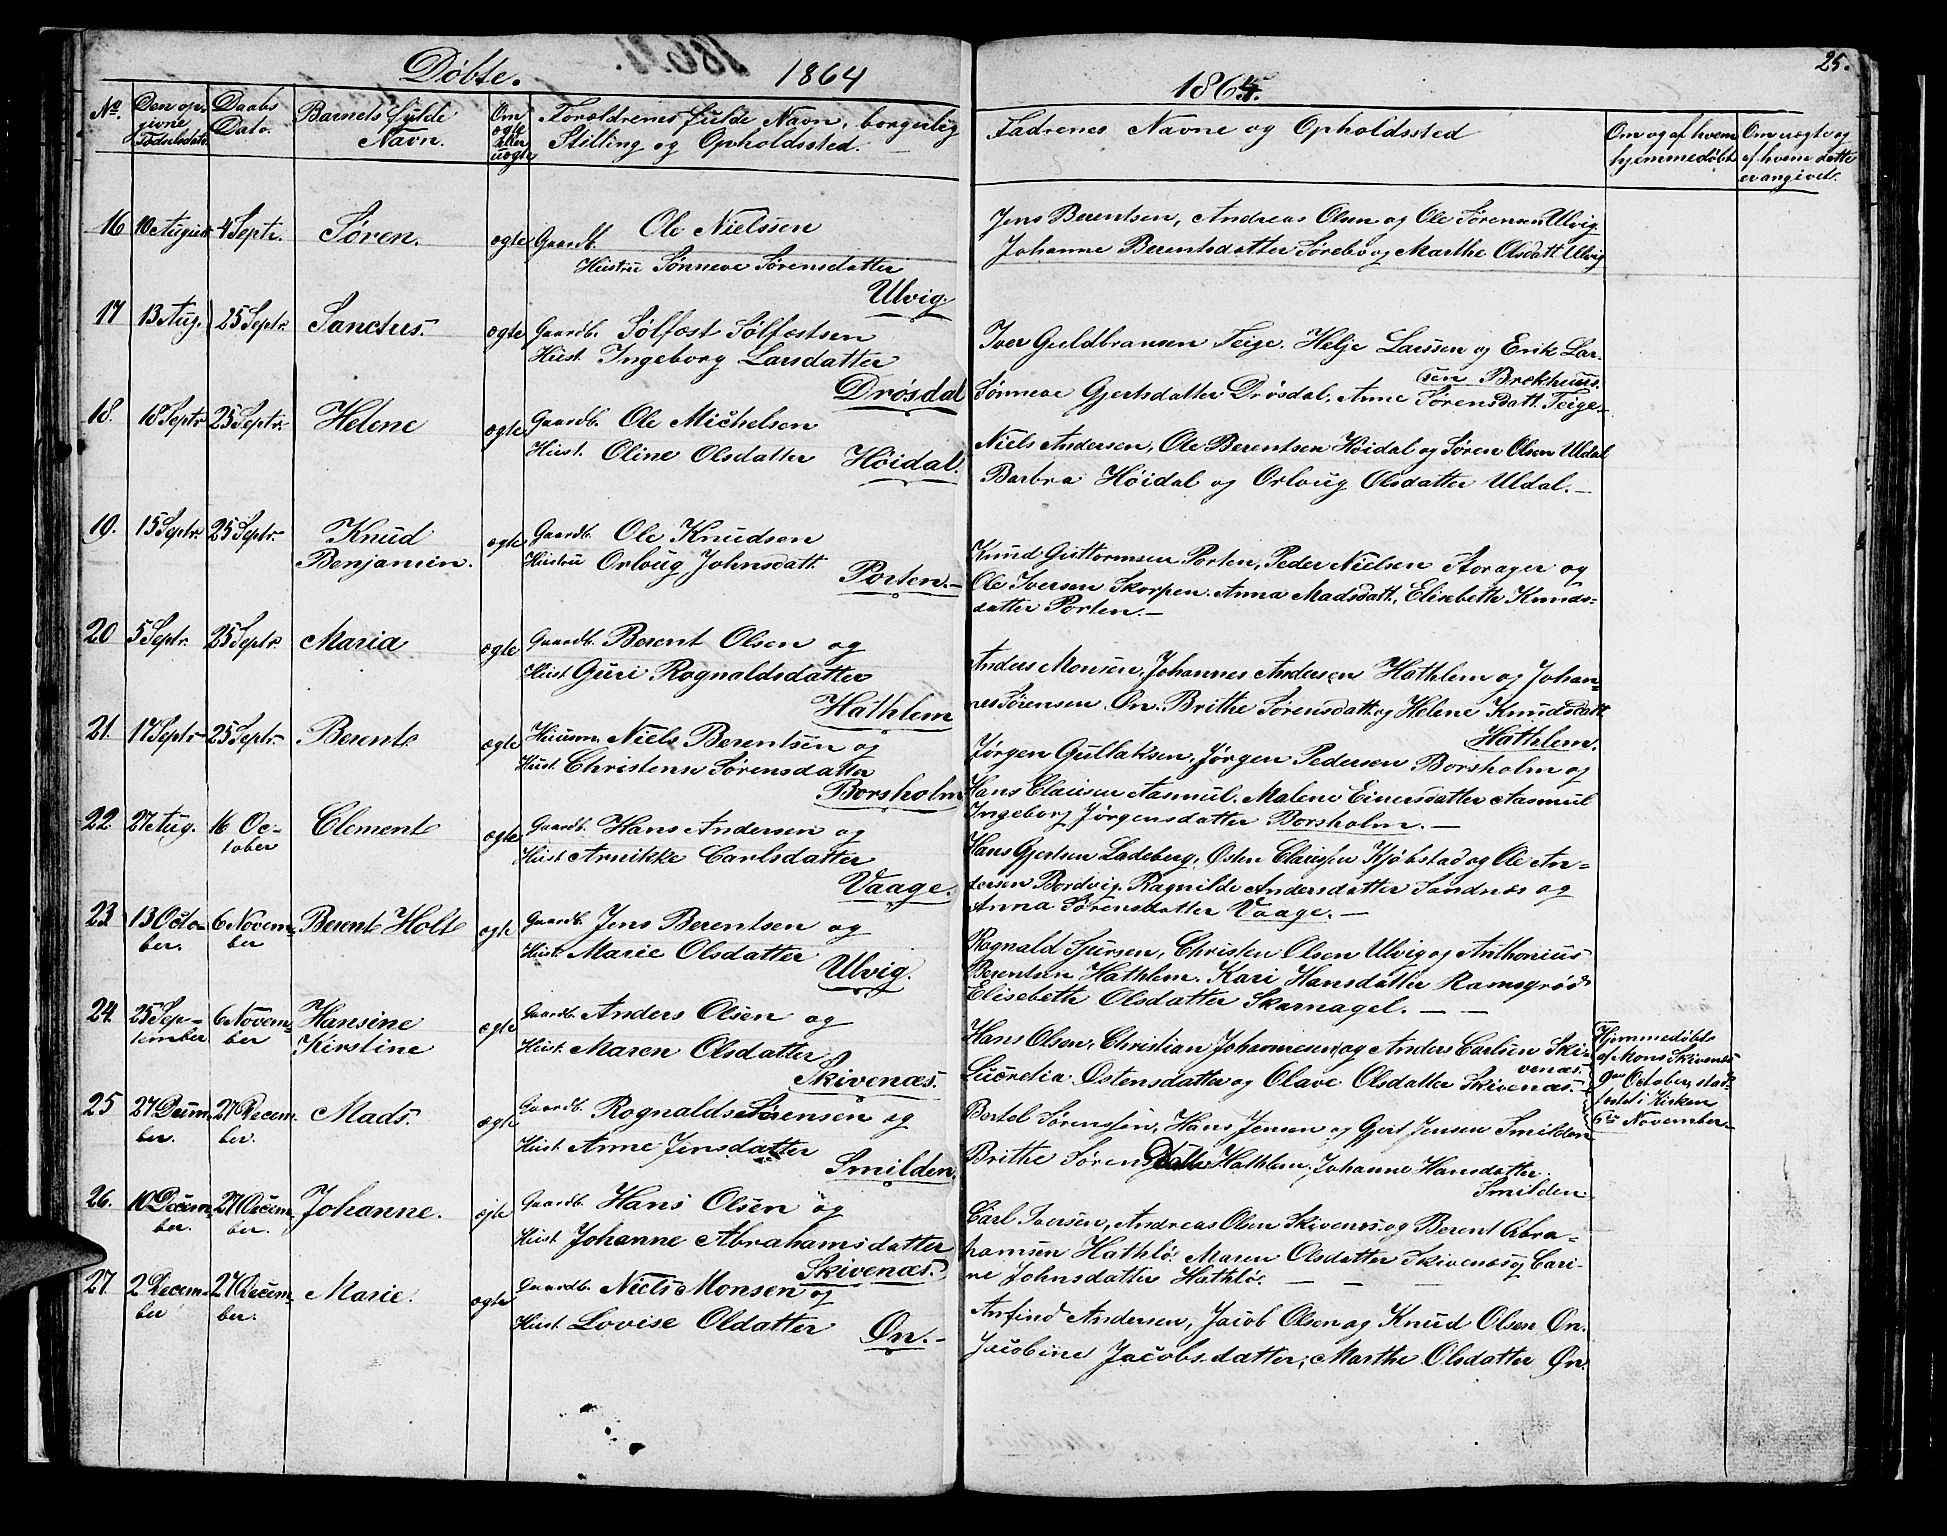 Døbte. 1864 1864. 25.
No. Den opgivne Fødselsdato. Daabs Dato. Barnets fulde Navn. Om ægte eller uægte Forældrenes fulde Navn, borgerlig Stilling og Opholdssted. Fadrenes Navne og Opholdssted Om og af hvem hjemmedøbt Om uægte og af hvem dette er angivet.
16 10 August 4 Septr. Søren. ægte Gaardb. Ole Nielssen
Hustru Sønneve Sørensdatter
Ulvig.
Jens Berentsen, Andreas Olsen og Ole Sørensen Ulvig.
Johanne Berentsdatter Sørebø og Marthe Olsdatt. Ulvig
17 13 Aug. 25 Septr. Sanctus. ægte Gaardb. Sølfæst Sølfæstsen
Hust. Ingeborg Larsdatter
Drøsdal
Iver Guldbransen Teige. Helje Larssen og Erik Lar-
sen Brekhuus.
Sønneve Gjertsdatter Drøsdal, Anne Sørensdatt. Teige.
18. 18 Septr 25 Septr. Helene ægte Gaardb. Ole Michelsen
Hust. Oline Olsdatter Høidal.
Niels Andersen, Ole Berentsen Høidal og Søren Olsen Uldal
Barbra Høidal og Orloug Olsdatter Uldal.
19. 15 Septr. 25 Septr. Knud Benjamin. ægte Gaardb. Ole Knudsen
Hustru Orloug Johnsdatt.
Porten.
Knud Guttormsen Porten, Peder Nielsen Storager og
Ole Iversen Skorpen. Anna Madsdatt., Elisebeth Knuds-
datter Porten.
20 5 Septr. 25 Septr. Maria ægte Gaardb. Berent Olsen og
Hust. Guri Rognaldsdatter
Hathlem
Anders Monsen, Johannes Andersen Hathlem og Johan-
nes Sørensen Øn. Brithe Sørensdatt. og Helene Knudsdatt.
Hathlem.
21. 17 Septr 25 Septr. Berent. ægte Huusm. Niels Berentsen og
Hust. Christense Sørensdatter
Borsholm
Jørgen Gullaksen, Jørgen Pedersen Borsholm og
Hans Clausen Aasmul. Malene Einersdatter Aasmul
Ingeborg Jørgensdatter Borsholm.
22. 27 Aug. 16 October Clement ægte Gaardb. Hans Andersen og
Hust. Arnikke Carlsdatter
Vaage.
Hans Gjertsen Ladeberg, Østen Claussen Kjøbstad og Ole An-
dersen Bordvig. Ragnilde Andersdatter Sandnæs og
Anna Sørensdatter Vaage.
23 13 October. 6 November Berent Holt ægte Gaardb. Jens Berentsen og
Hust. Marie Olsdatter
Ulvig.
Rognald Sjursen, Christen Olsen Ulvig og Anthonius
Berentsen Hathlem. Kari Hansdatter Ramsgrød
Elisebeth Olsdatter Skarnagel.
24. 25 September 6 November Hansine Kirstine ægte Gaardb. Anders Olsen og
Hust. Maren Olsdatter
Skivenæs.
Hans Olsen, Christian Johannesen og Anders Carlsen Ski-
venæs.
Lucretia Østensdatter og Olave Olsdatter Skivenæs.
Hjemmedøbt af Mons Skivenæs 9de October, stadfæstet i Kirken 6te November.
25 27 December. 27 December. Mads. ægte Gaardb. Rognald Sørensen og
Hust. Anne Jensdatter
Smilden.
Bertel Sørenssen, Hans Jensen og Gjert Jensen Smilden
Brithe Sørensdatt. Hathlem, Johanne Hansdatter
Smilden
26. 10 December. 27 December. Johanne. ægte Gaardb. Hans Olsen og
Hust. Johanne Abrahamsdatter
Skivenæs.
Carl Iversen, Andreas Olsen Skivenæs og Berent Abra-
hamsen Hathlø. Maren Olsdatter Skivenæs og Cari-
ne Johnsdatter Hathlø.
27. 2 December 27 December. Marie. ægte Gaardb. Niels Monsen og
Hust. Lovise Oldatter Øn.
Anfind Andersen, Jacob Olsen og Knud Olsen Øn.
Jacobine Jacobsdatter, Marthe Olsdatter Øn.